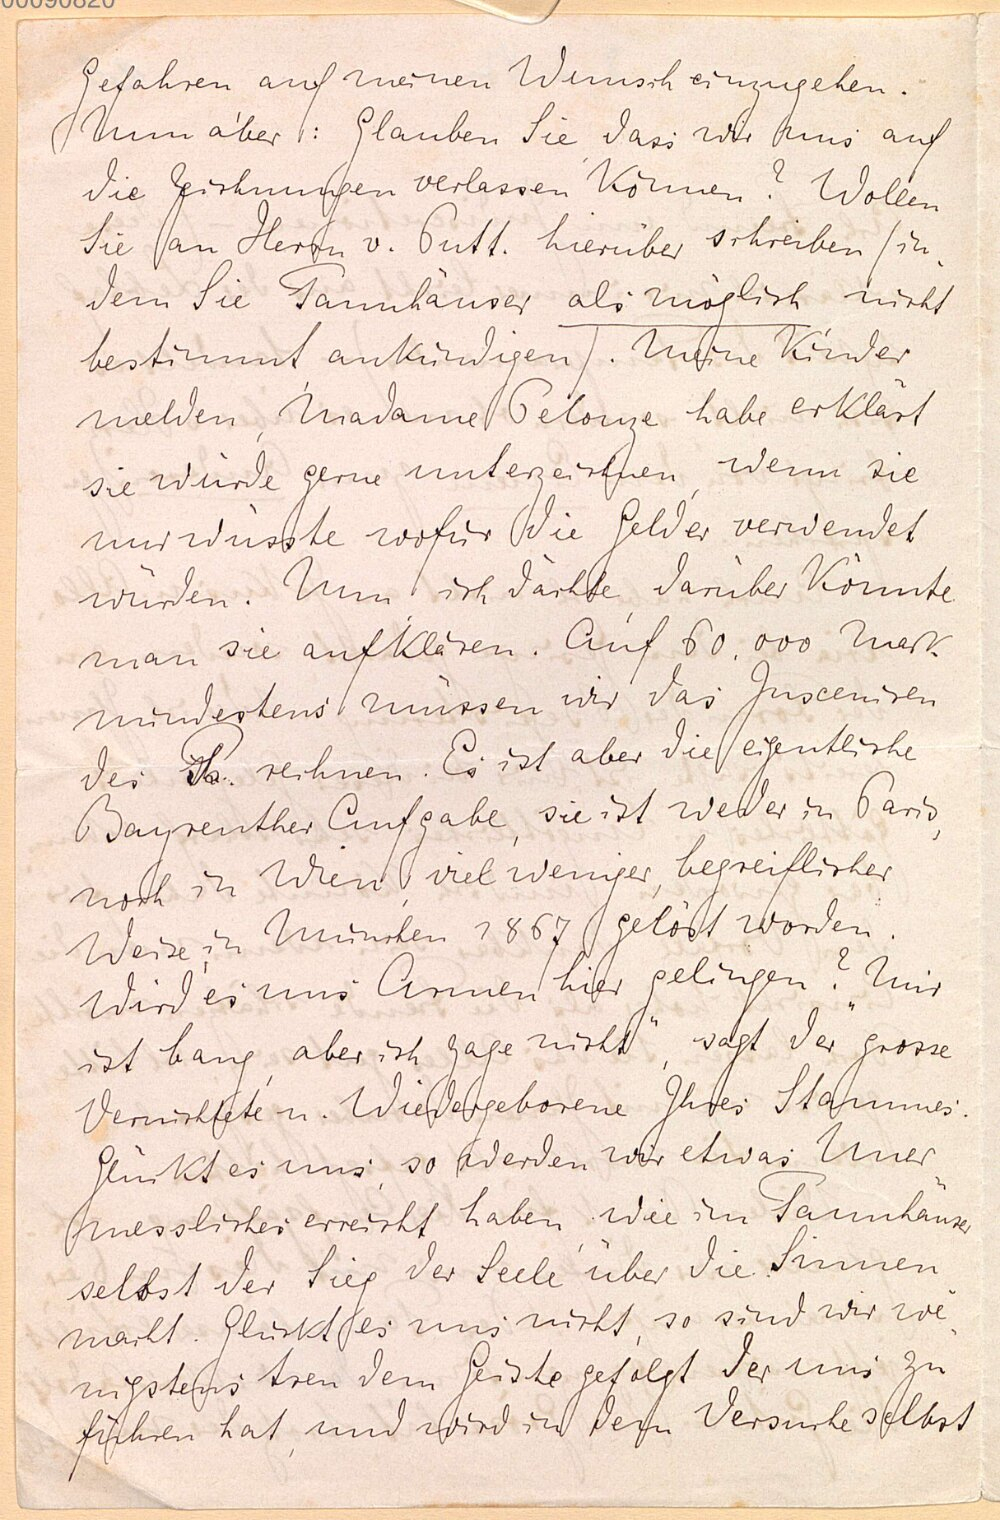 00090820
Gefahren auf meinen Wunsch einzugehen.
Nun aber: Glauben Sie, dass wir uns auf
die Zeichnungen verlassen können? Wollen
Sie an Herrn v. Putt. hierüber schreiben (in-
dem Sie Tannhäuser als möglich nicht
bestimmt ankündigen). Meine Kinder
melden, Madame Pelouze habe erklärt
sie würde gerne unterzeichnen, wenn sie
nur wüsste wofür die Gelder verwendet
würden. Nun, ich dächte, darüber könnte
man sie aufklären. Auf 60.000 Mark
mindestens müssen wir das Insceniren
des Th. rechnen. Es ist aber die eigentliche
Bayreuther Aufgabe, sie ist weder in Paris,
noch in Wien, viel weniger, begreiflicher
Weise, in München 1867 gelöst worden.
Wird es uns Armen hier gelingen? "Mir
ist bang, aber ich zage nicht", sagt der grosse
Vernichtete u. Wiedergeborene Ihres Stammes.
Glückt es uns, so werden wir etwas Uner
messliches erreicht haben, wie im Tannhäuser
selbst der Sieg der Seele über die Sinnen
macht. Glückt es uns nicht, so sind wir we-
nigstens treu dem Geiste gefolgt der uns zu
führen hat, und wird in dem Versuche selbst